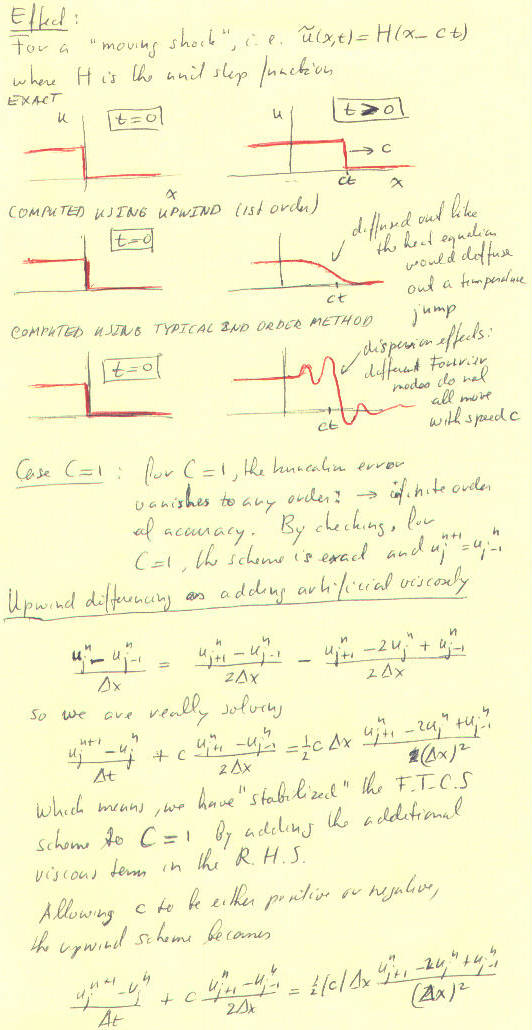 Effect:
For a "moving shock", i.e. ũ(x,t) = H(x - ct)
where H is the unit step function
EXACT
u t=0 u t>0
→ c
x ct x
COMPUTED USING UPWIND (1st order)
t=0
diffused out like
the heat equation
would diffuse
out a temperature
jump
ct
COMPUTED USING TYPICAL 2ND ORDER METHOD
t=0
dispersion effects:
different Fourier
modes do not
all move
with speed c
ct
Case C=1 : for C=1, the truncation error
vanishes to any order: → infinite order
of accuracy. By checking, for
C=1, the scheme is exact and u_j^{n+1} = u_{j-1}^n
Upwind differencing as adding artificial viscosity
(u_j^n - u_{j-1}^n)/Δx = (u_{j+1}^n - u_{j-1}^n)/2Δx - (u_{j+1}^n - 2u_j^n + u_{j-1}^n)/2Δx
so we are really solving
(u_j^{n+1} - u_j^n)/Δt + c (u_{j+1}^n - u_{j-1}^n)/2Δx = ½ c Δx (u_{j+1}^n - 2u_j^n + u_{j-1}^n)/(Δx)²
Which means, we have "stabilized" the F.T.C.S
scheme to C=1 By adding the additional
viscous term in the R.H.S.
Allowing c to be either positive or negative,
the upwind scheme becomes
(u_j^{n+1} - u_j^n)/Δt + c (u_{j+1}^n - u_{j-1}^n)/2Δx = ½ |c| Δx (u_{j+1}^n - 2u_j^n + u_{j-1}^n)/(Δx)²